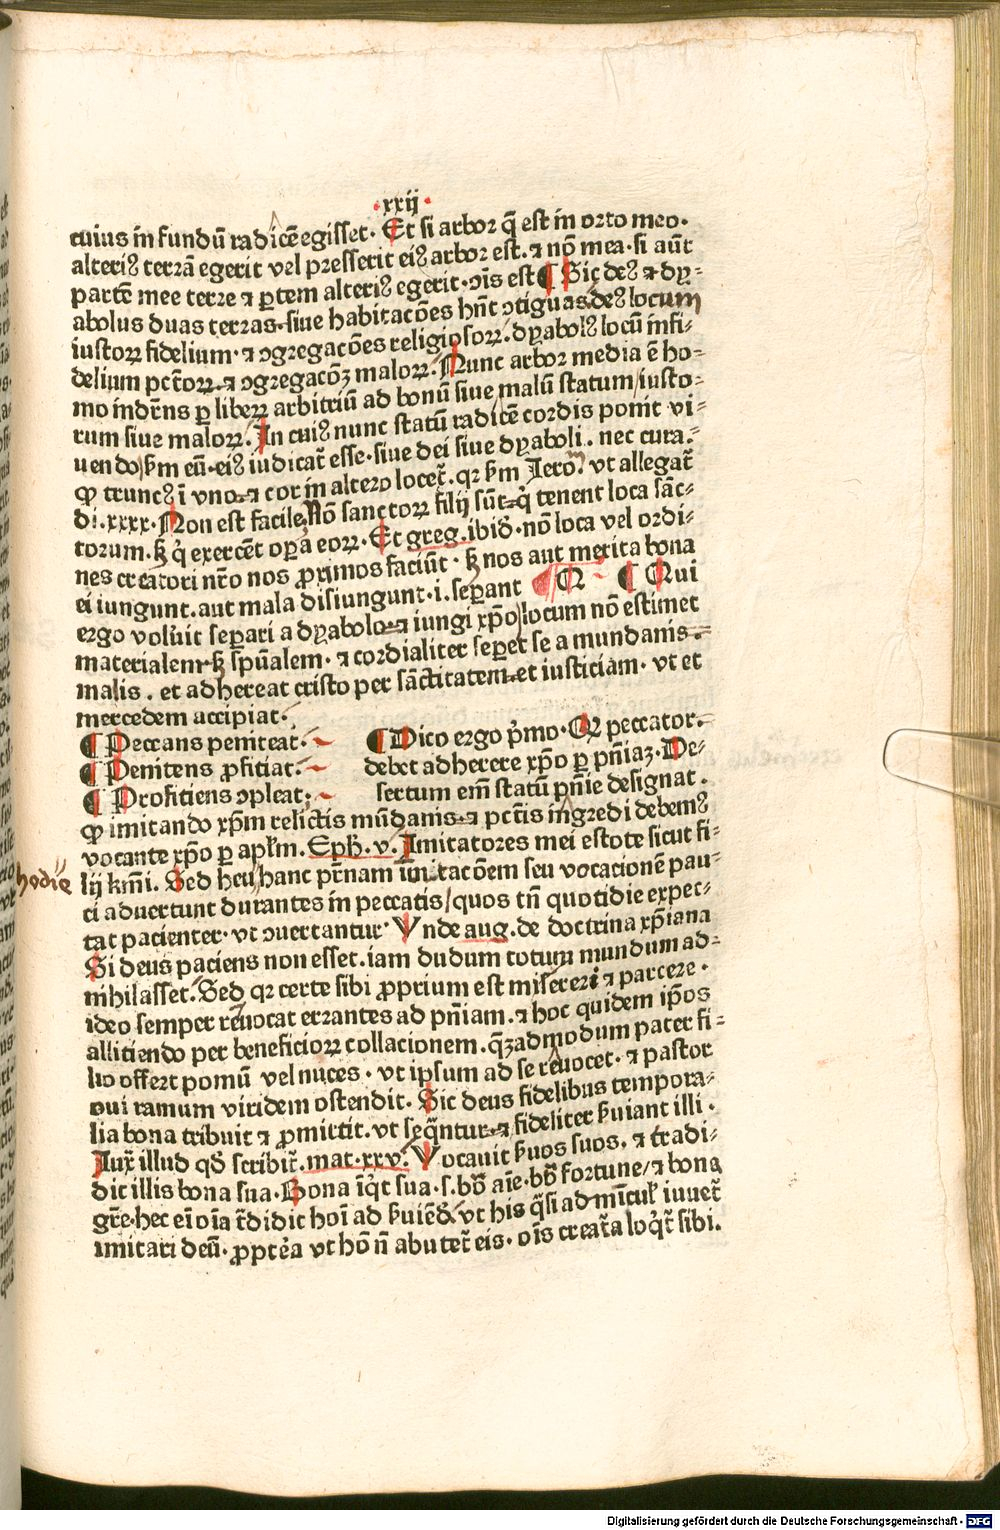 ·xxij·
cuius in fundū radicē egisset. Et si arbor q̄ est in orto meo.
alteriꝰ terrā egerit vel presserit eiꝰ arbor est. ⁊ nō mea. si aūt
partē mee terre ⁊ ꝑtem alteriꝰ egerit. ꝯīs est ¶ Sic deꝰ ⁊ dy-
abolus duas terras. siue habitacōes hn̄t ꝯtiguas. deꝰ locum
iustoꝝ fidelium. ⁊ ꝯgregacōes religiosoꝝ. dyabolꝰ locū infi-
delium pctōꝝ. ⁊ ꝯgregacōꝫ maloꝝ. Nunc arbor media ē ho-
mo indr̄ns ꝑ libeꝝ arbitriū ad bonū siue malū statum iusto-
rum siue maloꝝ. In cuiꝰ nunc statū radicē cordis ponit vi-
uendo ẜm eū. eiꝰ iudicat̄ esse. siue dei siue dyaboli. nec cura.
ꝙ truncꝰ ī vno. ⁊ cor in altero locet̄. qꝛ ẜm Ierom̄. vt allegat̄
di. xxxx. Non est facile Nō sanctoꝝ filij sūt. q̇ tenent loca sāc-
torum. ꜩ q̇ exercēt oꝑa eoꝝ. Et greg. ibid̄. nō loca vel ordi-
nes creatori nr̄o nos ꝓximos faciūt. ꜩ nos aut merita bona
ei iungunt. aut mala disiungunt. i. seꝑant ¶ Q ¶ Qui
ergo voluit seꝑari a dyabolo. ⁊ iungi xp̄o locum nō estimet
materialem. ꜩ sp̄ualem. ⁊ cordialiter seꝑet se a mundanis. =
malis. et adhereat cristo per sāctitatem. et iusticiam. vt et
mercedem accipiat.
¶ Peccans peniteat. ¶ Dico ergo pͥmo. Qꝛ peccator.
¶ Penitens ꝓficiat. debet adherere xp̄o ꝑ pn̄iaꝫ. De-
¶ Proficiens ꝯpleat; sertum em̄ statū pn̄ie designat.
ꝙ imitando xp̄m relictis mūdanis. ⁊ pctīs ingredi debemꝰ
vocante xp̄o ꝑ apl̄m. Eph. v. Imitatores mei estote sicut fi-
hodie
lij km̄i. Sed heu hanc pr̄nam imitacōem seu vocacionē pau-
ci aduertunt durantes in peccatis quos tn̄ quotidie expec-
tat pacienter. vt ꝯuertantur. Vnde aug. de doctrina xp̄iana
Si deus paciens non esset. iam dudum totum mundum ad-
nihilasset. Sed qꝛ certe sibi ꝓprium est misereri ⁊ parcere.
ideo semper reuocat errantes ad pn̄iam. ⁊ hoc quidem ip̄os
alliciendo per beneficioꝝ collacionem. qꝫadmodum pater fi-
lio offert pomū vel nuces. vt ipsum ad se reuocet. ⁊ pastor
oui ramum viridem ostendit. Sic deus fidelibus tempora-
lia bona tribuit ⁊ ꝓmittit. vt seq̄ntur. ⁊ fideliter ẜuiant illi.
Iux̄ illud qd̄ scribit̄. mat. xxv. Vocauit ẜuos suos. ⁊ tradi-
dit illis bona sua. Bona īq̇t sua. s. bō aīe. bō fortune ⁊ bona
gr̄e. hec eī oīa t̄didit hoī ad ẜuiēd̄. vt his q̄si admīcul̕ iuuet̄
imitari deū. ꝓpterea vt hō n̄ abutet̄ eis. oīs creat̄a loq̇t̄ sibi.
Digitalisierung gefördert durch die Deutsche Forschungsgemeinschaft - DFG